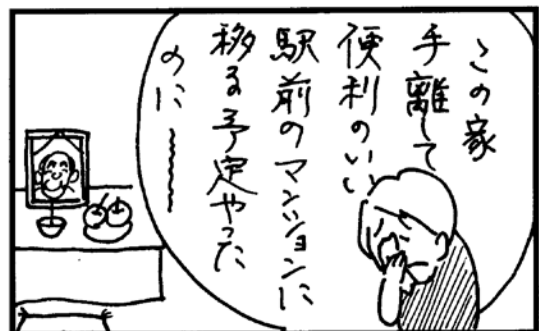 この家
手離して
便利のいい
駅前のマンションに
移る予定やった
のに〰〰